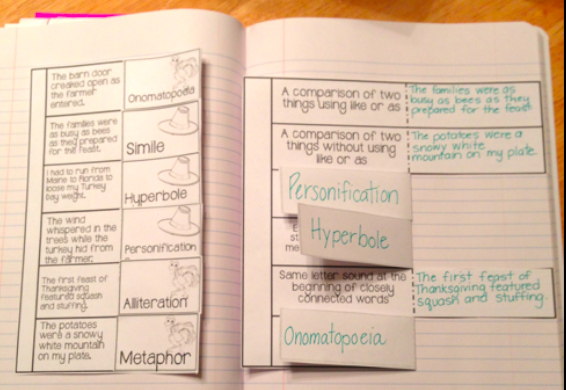 The barn door
creaked open as
the farmer
entered.
Onomatopoeia
The families were
as busy as bees
as they prepared
for the feast.
Simile
I had to run from
Maine to Florida to
loose my Turkey
Day weight.
Hyperbole
The wind
whispered in the
trees while the
turkey hid from
the farmer.
Personification
The first feast of
Thanksgiving
featured squash
and stuffing.
Alliteration
The potatoes
were a snowy
white mountain
on my plate.
Metaphor
A comparison of two
things using like or as
The families were as
busy as bees as they
prepared for the feast
A comparison of two
things without using
like or as
The potatoes were a
snowy white
mountain on my plate.
Personification
Hyperbole
Same letter sound at the
beginning of closely
connected words
The first feast of
Thanksgiving featured
squash and stuffing.
Onomatopoeia